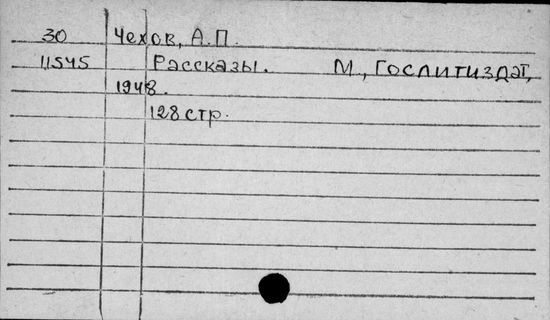 30 Чехов, А.П.
11545 Рассказы. М., Гослитиздат,
1948.
128 стр.